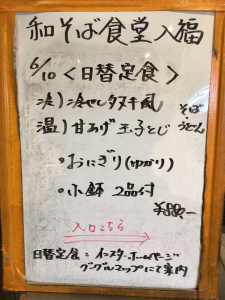 和そば食堂入福
6/10 <日替定食>
冷)冷せいタヌキ風
温)甘あげ玉子とじ
そば
うどん
・おにぎり(ゆかり)
・小鉢 2品付
¥880-
入口こちら
日替定食：インスタ・ホームページ
グーグルマップにて案内